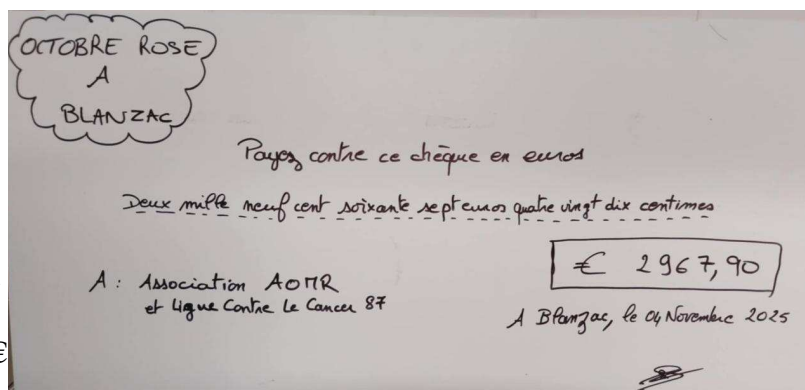 OCTOBRE ROSE
A
BLANZAC
Payez contre ce chèque en euros
Deux mille neuf cent soixante sept euros quatre vingt dix centimes
€ 2967,90
A : Association AOMR
et Ligue Contre Le Cancer 87
A Blanzac, le 04 Novembre 2025
€